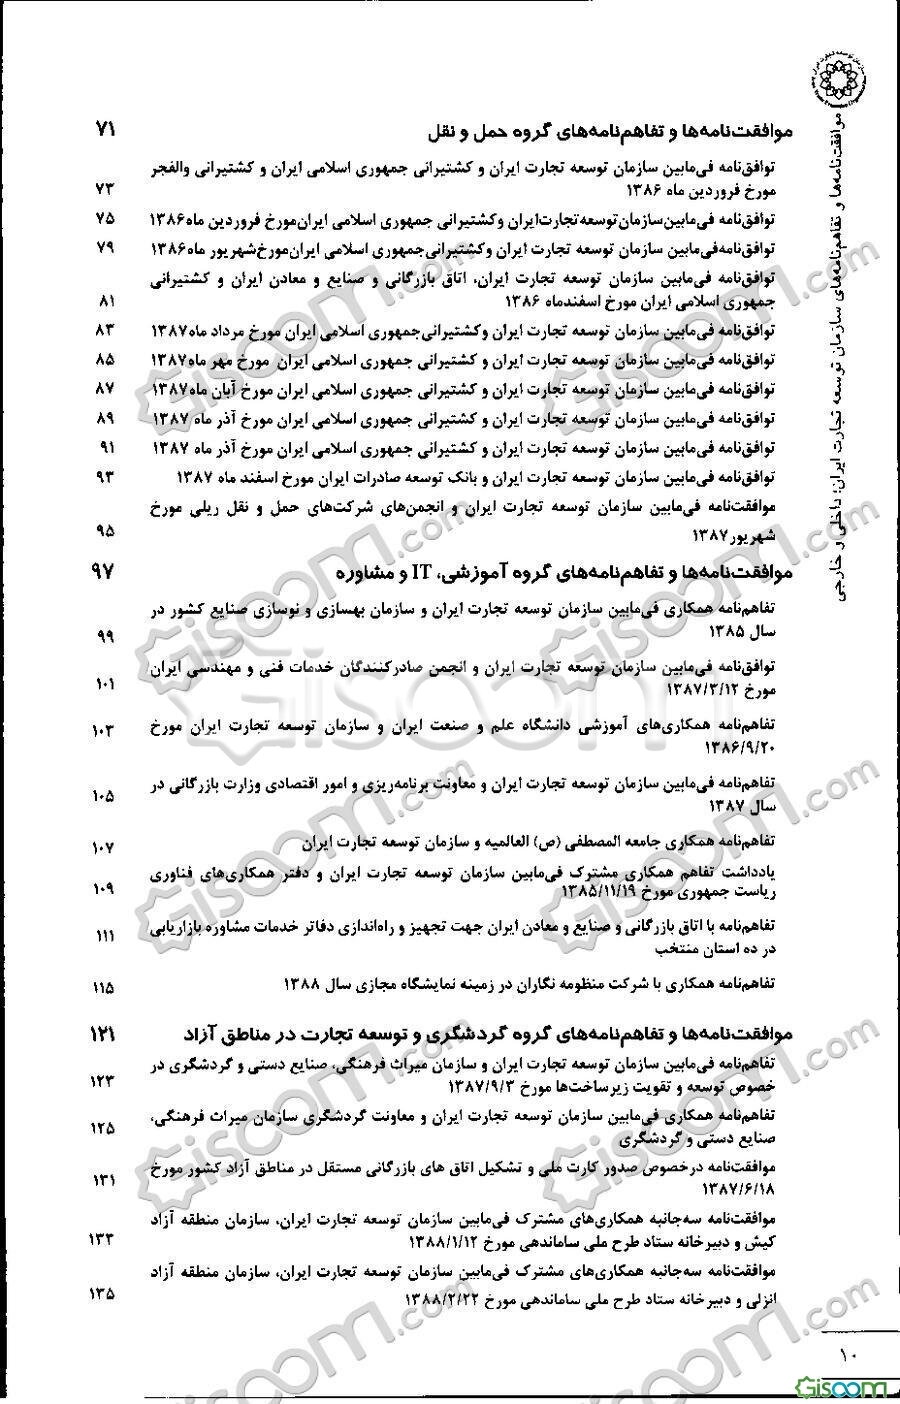 موافقت‌نامه‌ها و تفاهم‌نامه‌های سازمان توسعه تجارت ایران: داخلی و خارجی
موافقت‌نامه‌ها و تفاهم‌نامه‌های گروه حمل و نقل ۷۱
توافق‌نامه فی‌مابین سازمان توسعه تجارت ایران و کشتیرانی جمهوری اسلامی ایران و کشتیرانی والفجر
مورخ فروردین ماه ۱۳۸۶ ۷۳
توافق‌نامه فی‌مابین سازمان توسعه تجارت ایران و کشتیرانی جمهوری اسلامی ایران مورخ فروردین ماه ۱۳۸۶ ۷۵
توافق‌نامه فی‌مابین سازمان توسعه تجارت ایران و کشتیرانی جمهوری اسلامی ایران مورخ شهریور ماه ۱۳۸۶ ۷۹
توافق‌نامه فی‌مابین سازمان توسعه تجارت ایران، اتاق بازرگانی و صنایع و معادن ایران و کشتیرانی
جمهوری اسلامی ایران مورخ اسفندماه ۱۳۸۶ ۸۱
توافق‌نامه فی‌مابین سازمان توسعه تجارت ایران و کشتیرانی جمهوری اسلامی ایران مورخ مرداد ماه ۱۳۸۷ ۸۳
توافق‌نامه فی‌مابین سازمان توسعه تجارت ایران و کشتیرانی جمهوری اسلامی ایران مورخ مهر ماه ۱۳۸۷ ۸۵
توافق‌نامه فی‌مابین سازمان توسعه تجارت ایران و کشتیرانی جمهوری اسلامی ایران مورخ آبان ماه ۱۳۸۷ ۸۷
توافق‌نامه فی‌مابین سازمان توسعه تجارت ایران و کشتیرانی جمهوری اسلامی ایران مورخ آذر ماه ۱۳۸۷ ۸۹
توافق‌نامه فی‌مابین سازمان توسعه تجارت ایران و کشتیرانی جمهوری اسلامی ایران مورخ آذر ماه ۱۳۸۷ ۹۱
توافق‌نامه فی‌مابین سازمان توسعه تجارت ایران و بانک توسعه صادرات ایران مورخ اسفند ماه ۱۳۸۷ ۹۳
موافقت‌نامه فی‌مابین سازمان توسعه تجارت ایران و انجمن‌های شرکت‌های حمل و نقل ریلی مورخ
شهریور ۱۳۸۷ ۹۵
موافقت‌نامه‌ها و تفاهم‌نامه‌های گروه آموزشی، IT و مشاوره ۹۷
تفاهم‌نامه همکاری فی‌مابین سازمان توسعه تجارت ایران و سازمان بهسازی و نوسازی صنایع کشور در
سال ۱۳۸۵ ۹۹
توافق‌نامه فی‌مابین سازمان توسعه تجارت ایران و انجمن صادرکنندگان خدمات فنی و مهندسی ایران
مورخ ۱۳۸۷/۳/۱۲ ۱۰۱
تفاهم‌نامه همکاری‌های آموزشی دانشگاه علم و صنعت ایران و سازمان توسعه تجارت ایران مورخ
۱۳۸۶/۹/۲۰ ۱۰۳
تفاهم‌نامه فی‌مابین سازمان توسعه تجارت ایران و معاونت برنامه‌ریزی و امور اقتصادی وزارت بازرگانی در
سال ۱۳۸۷ ۱۰۵
تفاهم‌نامه همکاری جامعه المصطفی (ص) العالمیه و سازمان توسعه تجارت ایران ۱۰۷
یادداشت تفاهم همکاری مشترک فی‌مابین سازمان توسعه تجارت ایران و دفتر همکاری‌های فناوری
ریاست جمهوری مورخ ۱۳۸۵/۱۱/۱۹ ۱۰۹
تفاهم‌نامه با اتاق بازرگانی و صنایع و معادن ایران جهت تجهیز و راه‌اندازی دفاتر خدمات مشاوره بازاریابی
در ده استان منتخب ۱۱۱
تفاهم‌نامه همکاری با شرکت منظومه نگاران در زمینه نمایشگاه مجازی سال ۱۳۸۸ ۱۱۵
موافقت‌نامه‌ها و تفاهم‌نامه‌های گروه گردشگری و توسعه تجارت در مناطق آزاد ۱۲۱
تفاهم‌نامه فی‌مابین سازمان توسعه تجارت ایران و سازمان میراث فرهنگی، صنایع دستی و گردشگری در
خصوص توسعه و تقویت زیرساخت‌ها مورخ ۱۳۸۷/۹/۳ ۱۲۳
تفاهم‌نامه همکاری فی‌مابین سازمان توسعه تجارت ایران و معاونت گردشگری سازمان میراث فرهنگی،
صنایع دستی و گردشگری ۱۲۵
موافقت‌نامه درخصوص صدور کارت ملی و تشکیل اتاق های بازرگانی مستقل در مناطق آزاد کشور مورخ
۱۳۸۷/۶/۱۸ ۱۳۱
موافقت‌نامه سه‌جانبه همکاری‌های مشترک فی‌مابین سازمان توسعه تجارت ایران، سازمان منطقه آزاد
کیش و دبیرخانه ستاد طرح ملی ساماندهی مورخ ۱۳۸۸/۱/۱۲ ۱۳۳
موافقت‌نامه سه‌جانبه همکاری‌های مشترک فی‌مابین سازمان توسعه تجارت ایران، سازمان منطقه آزاد
انزلی و دبیرخانه ستاد طرح ملی ساماندهی مورخ ۱۳۸۸/۲/۲۲ ۱۳۵
۱۰
Gisoom
Gisoom.com